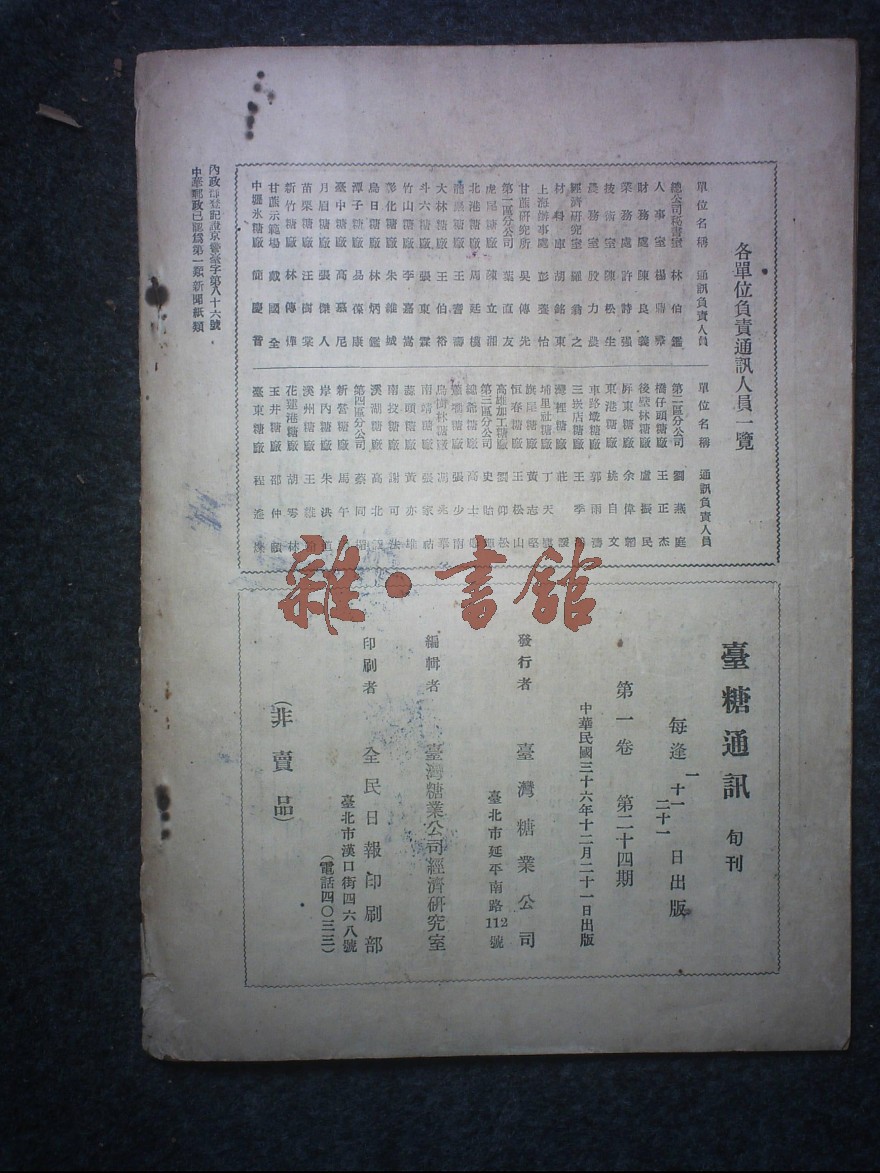 各單位負責通訊人員一覽
單位名稱 通訊負責人員
總公司秘書室 林伯鑑
人事室 楊
財務處 陳良義
業務處 許詩
技術室 陳松生
農務室 殷力農
經濟研究室 羅翁之
材料庫 胡銘東
上海辦事處 彭
甘蔗研究所 吳傳先
第一區分公司 葉直友
虎尾糖廠 陳立
北港糖廠 周延
糖廠 王
大林糖廠 王伯裕
斗六糖廠 張東
竹山糖廠 李嘉嵩
彰化糖廠 朱維城
烏日糖廠 林炳鑑
潭子糖廠 易葆康
臺中糖廠 高慕尼
月眉糖廠 張傑人
苗栗糖廠 王樹棠
新竹糖廠 林傳
甘蔗示範場 戴國全
中壢氷糖廠 簡慶
單位名稱 通訊負責人員
第二區分公司 劉燕庭
橋仔頭糖廠 王正杰
後壁林糖廠 盧振民
屏東糖廠 余偉
東港糖廠 姚自文
車路墘糖廠 郭雨濤
三崁店糖廠 王季
灣裡糖廠 莊
埔里社糖廠 丁天
旗尾糖廠 黃志學
恒春糖廠 王松山
高雄加工糖廠 劉仰松
第三區分公司 史貽
總爺糖廠 高士
糖廠 張少南
烏樹林糖廠 馮兆華
南靖糖廠 張家
蒜頭糖廠 黃亦
南投糖廠 謝可
溪湖糖廠 高北
第四區分公司 蔡同
新營糖廠 馬午
岸內糖廠 朱洪
溪州糖廠 王維
花蓮港糖廠 胡雩林
玉井糖廠 邵仲
臺東糖廠 程
內政部登記證京警臺字第八十六號
中華郵政已認為第一類新聞紙類
臺糖通訊 旬刊
每逢 一 十一 二十一 日出版
第一卷 第二十四期
中華民國三十六年十二月二十一日出版
發行者 臺灣糖業公司
臺北市延平南路112號
編輯者 臺灣糖業公司經濟研究室
印刷者 全民日報印刷部
臺北市漢口街四六八號
(電話四〇三三)
(非賣品)
雜·書館